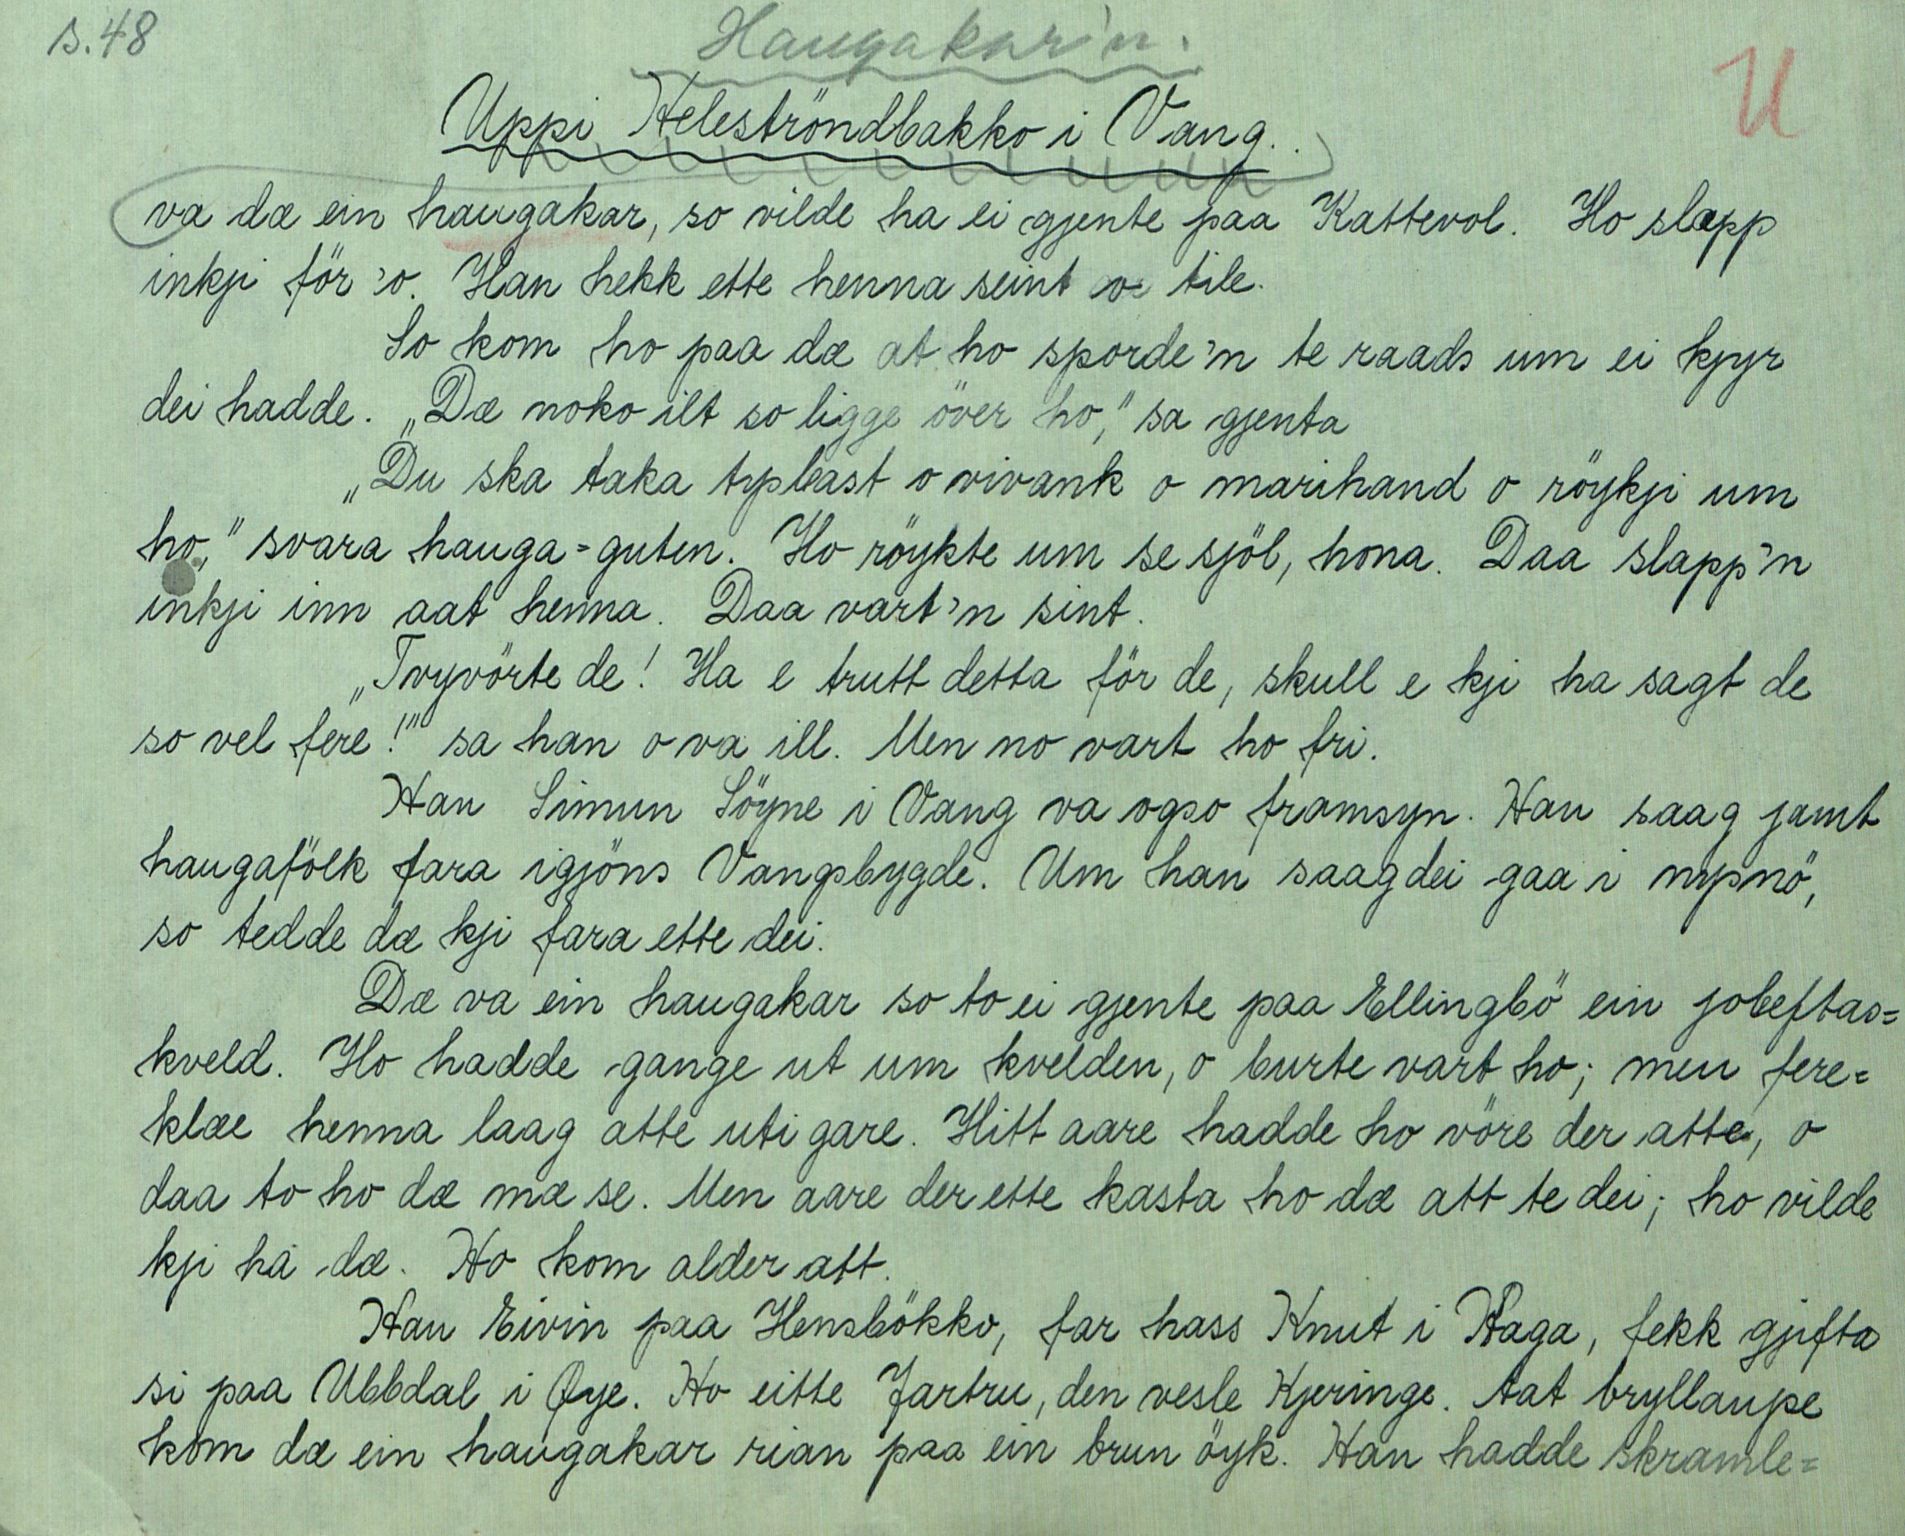 s. 48
Haugakar'n.
U
Uppi Heleströndbakko i Vang.
va dæ ein haugakar, so vilde ha ei gjente paa Kattevol. Ho slapp
inkji för 'o. Han hekk ette henna seint o tile.
So kom ho paa dæ at ho sporde'n te raads um ei kjyr
dei hadde. „Dæ noko ilt so ligge över ho," sa gjenta
„Du ska taka tyblast o vivank o marihand o röykji um
ho," svara hauga=guten. Ho röykte um se sjöl, hona. Daa slapp'n
inkji inn aat henna. Daa vart'n sint.
„Tvyvörte de! Ha e trutt detta för de, skull e kji ha sagt de
so vel fere!" sa han o va ill. Men no vart ho fri.
Han Simun Söyne i Vang va ogso framsyn. Han saag jamt
haugafölk fara igjöns Vangsbygde. Um han saag dei gaa i nysnö,
so tedde dæ kji fara ette dei.
Dæ va ein haugakar so to ei gjente paa Ellingbö ein joleftas=
kveld. Ho hadde gange ut um kvelden, o burte vart ho; men fere=
klæe henna laag atte uti gare. Hitt aare hadde ho vöre der atte, o
daa to ho dæ mæ se. Men aare der ette kasta ho dæ att te dei; ho vilde
kji ha dæ. Ho kom alder att.
Han Eivin paa Hensbökko, far hass Knut i Haga, fekk gjifta
si paa Ubbdal i Øye. Ho eitte Jartru, den vesle Kjeringe. Aat bryllaupe
kom dæ ein haugakar rian paa ein brun öyk. Han hadde skramle=